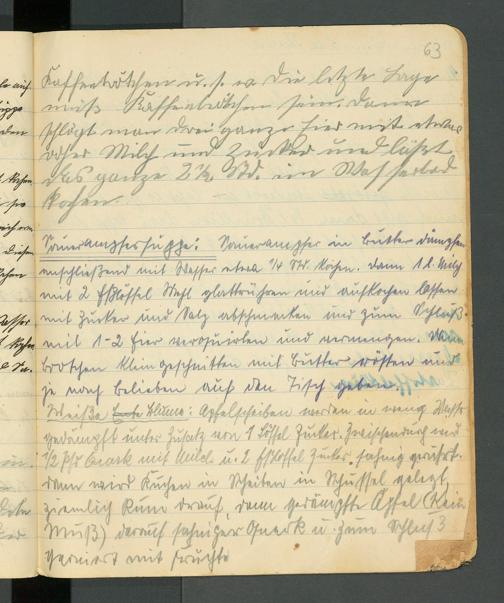 63
Kaffeebrötchen u. s. w. Die letzte Lage
muß Kaffeebrötchen sein. Dann
schlägt man drei ganze Eier mit etwas
oder Milch und Zucker und läßt
das ganze 2½ Std. im Wasserbad
kochen.
Sauerampfersuppe: Sauerampfer in Butter dämpfen
anschließend mit Wasser etwa ¼ Std. kochen. Dann 1 l. Milch
mit 2 Eßlöffel Mehl glattrühren und aufkochen lassen
mit Zucker und Salz abschmecken und zum Schluß
mit 1-2 Eier verquirlen und vermengen.
brötchen kleingeschnitten mit Butter rösten und
je nach Belieben auf den Tisch geben
Weiße Blume: Apfelscheiben werden in wenig Wasser
gedämpft unter Zusatz von 1 Löffel Zucker. Zwischendurch wird
½ Pfd Quark mit Milch u. 2 Eßlöffel Zucker sahnig gerührt.
dann wird Kuchen in Scheiben in Schüssel gelegt,
ziemlich Rum drauf, dann gedämpfte Äpfel (kein
Muß) darauf sahniger Quark u. zum Schluß
garniert mit Früchte